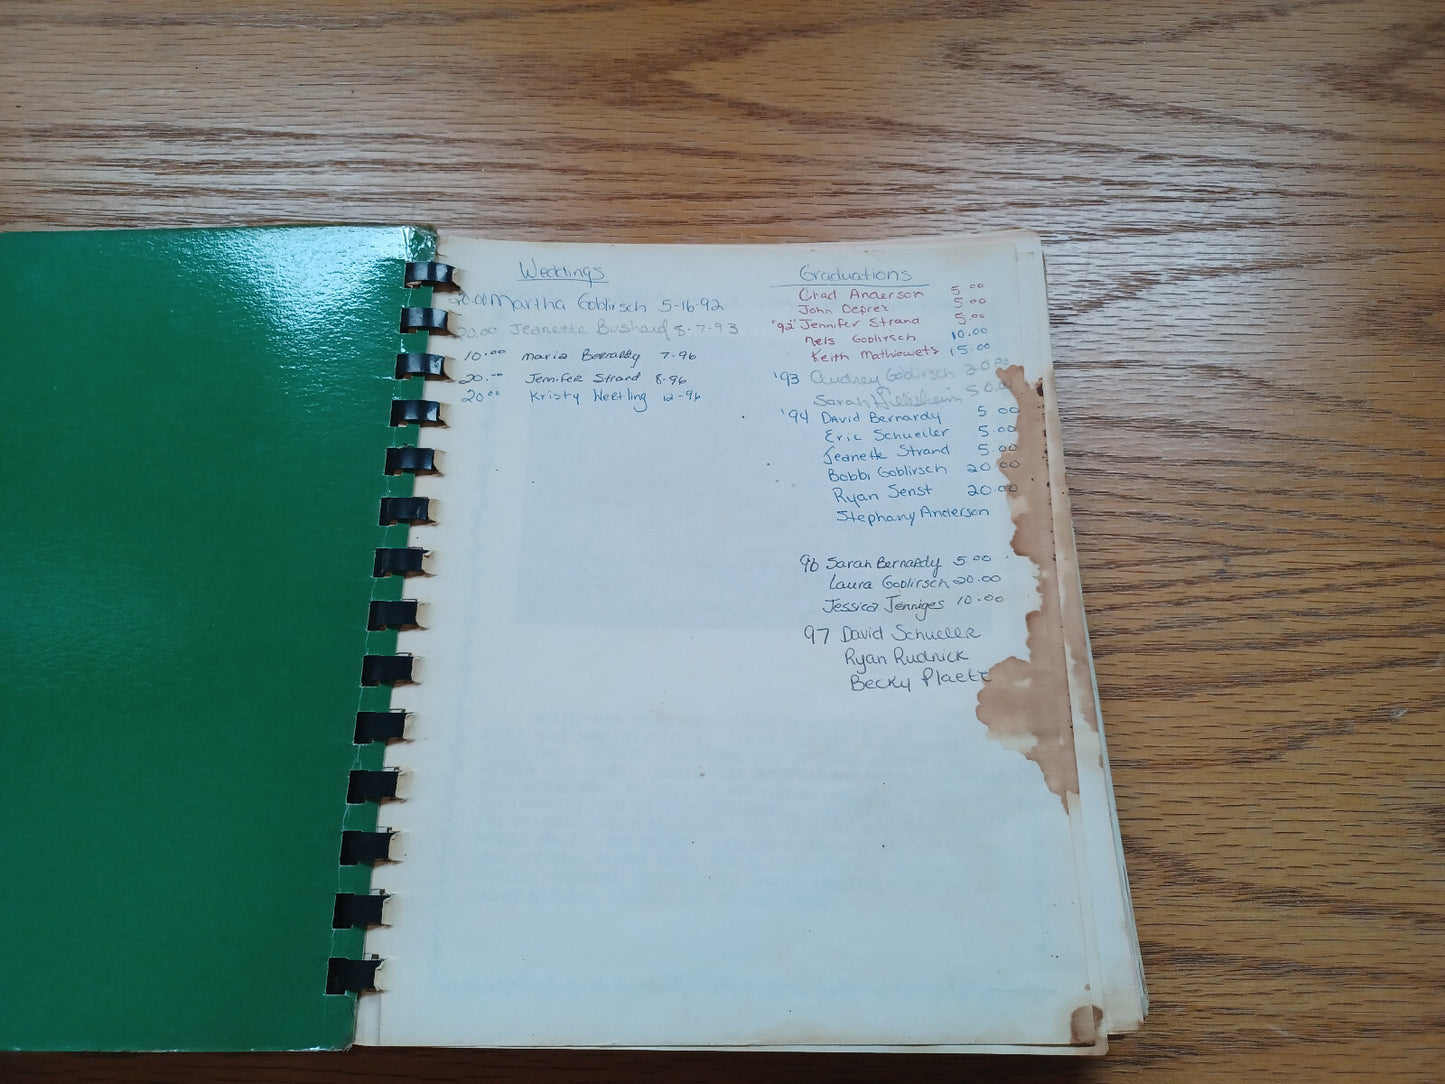 Weddings
Martha Goblirsch 5-16-92
20.00 Jeanette Bushard 8-7-93
10.00 Maria Bernardy 7-96
20.00 Jennifer Strand 8-96
20.00 Kristy Weetling 12-96
Graduations
Chad Anderson 5.00
John Deprez 5.00
"92" Jennifer Strand 5.00
Nels Goblirsch 10.00
Keith Mathiowetz 15.00
'93 Audrey Goblirsch 20.00
Sarah 50.00
'94 David Bernardy 5.00
Eric Schueller 5.00
Jeanette Strand 5.00
Bobbi Goblirsch 20.00
Ryan Senst 20.00
Stephany Anderson
96 Sarah Bernardy 5.00
Laura Goblirsch 20.00
Jessica Jenniges 10.00
97 David Schueller
Ryan Rudnick
Becky Plaetz